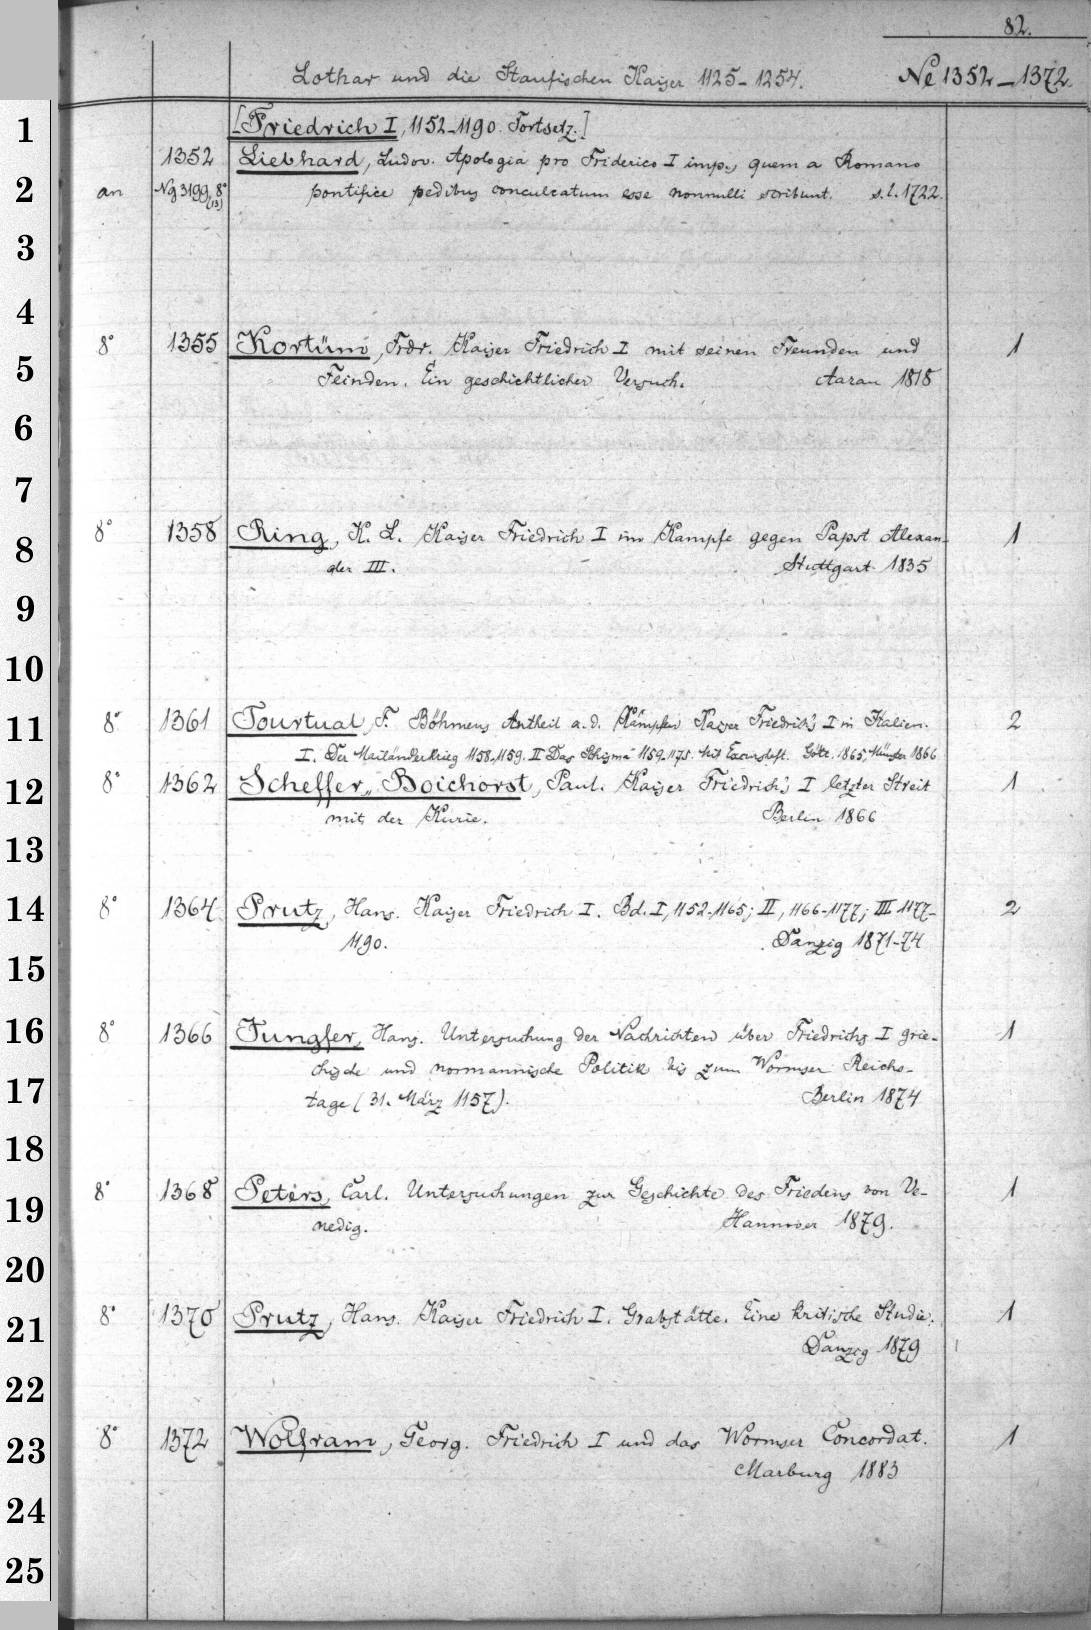 82.
Lothar und die Staufischen Kaiser 1125-1254. Ne 1352-1372.
1
[Friedrich I, 1152-1190. Fortsetz.]
1352 Liebhard, Ludov. Apologia pro Friderico I imp., quem a Romano
2 an Ng 3199, 8° (13) pontifice pedibus conculcatum esse nonnulli scribunt. s.l. 1722.
3
4
8° 1355 Kortüm, Frdr. Kaiser Friedrich I mit seinen Freunden und 1
5 Feinden. Ein geschichtlicher Versuch. Aarau 1818
6
7
8° 1358 Ring, K. L. Kaiser Friedrich I im Kampfe gegen Papst Alexan- 1
8 der III. Stuttgart 1835
9
10
11 8° 1361 Tourtual, F. Böhmens Antheil a. d. Kämpfen Kaiser Friedrich's I in Italien. 2
I. Der Mailänderkrieg 1158-1159. II Das Schisma 1159-1175. Mit Excursheft. Gött. 1865, Münster 1866
12 8° 1362 Scheffer-Boichorst, Paul. Kaiser Friedrich's I letzter Streit 1
mit der Kurie. Berlin 1866
13
14 8° 1364 Prutz, Hans. Kaiser Friedrich I. Bd. I, 1152-1165; II, 1166-1177; III 1177- 2
1190. Danzig 1871-74
15
16 8° 1366 Jungfer, Hans. Untersuchung der Nachrichten über Friedrichs I grie- 1
chische und normannische Politik bis zum Wormser Reichs-
17 tage (31. März 1157). Berlin 1874
18
8° 1368 Peters, Carl. Untersuchungen zur Geschichte des Friedens von Ve- 1
19 nedig. Hannover 1879.
20
8° 1370 Prutz, Hans. Kaiser Friedrich I. Grabstätte. Eine kritische Studie. 1
21 Danzig 1879
22
8° 1372 Wolfram, Georg. Friedrich I und das Wormser Concordat. 1
23 Marburg 1883
24
25